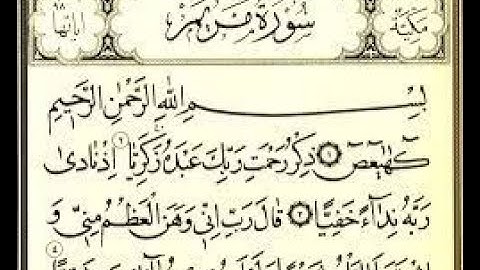 مكية سورة مريم آياتها ٩٨
بِسْمِ اللّٰهِ الرَّحْمٰنِ الرَّحِيمِ
كٓهٰيٰعٓصٓ ﴿١﴾ ذِكْرُ رَحْمَتِ رَبِّكَ عَبْدَهُ زَكَرِيَّا ﴿٢﴾ اِذْ نَادٰى
رَبَّهُ نِدَٓاءً خَفِيًّا ﴿٣﴾ قَالَ رَبِّ اِنّٖى وَهَنَ الْعَظْمُ مِنّٖى وَ